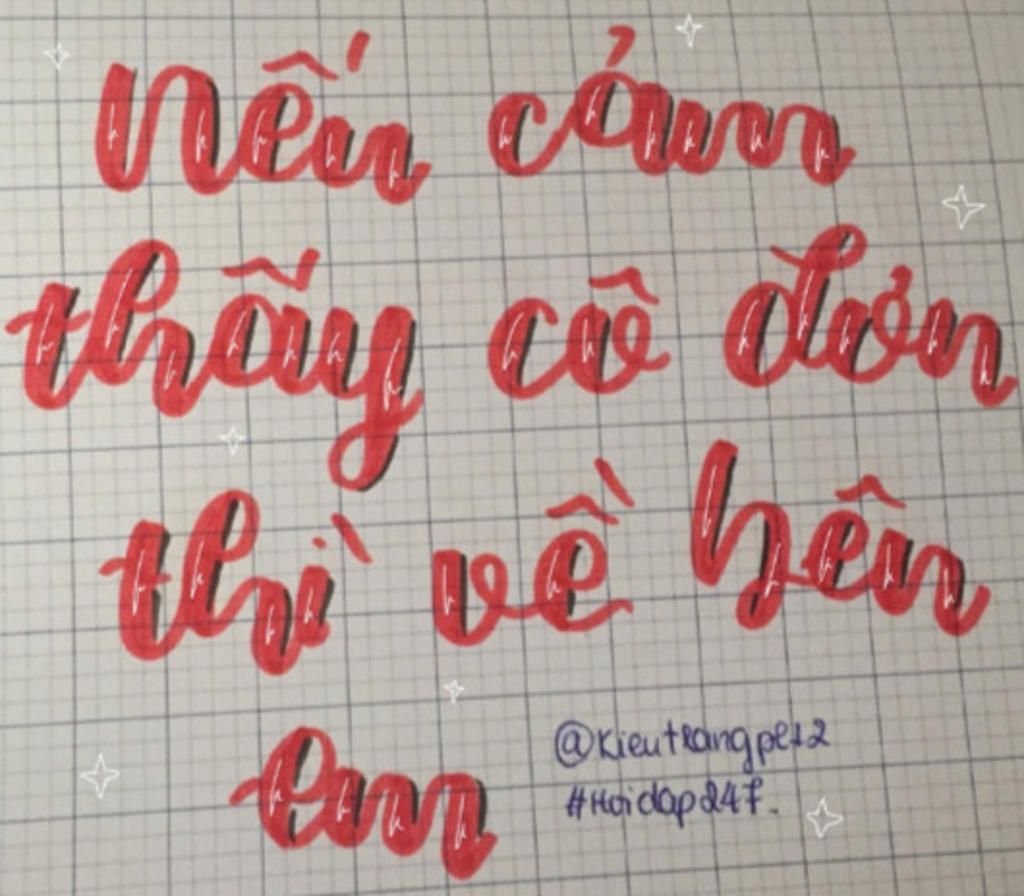 Nếu cảm
thấy cô đơn
thì về bên
em
@Kieutrangpet2
#Hoidap247.